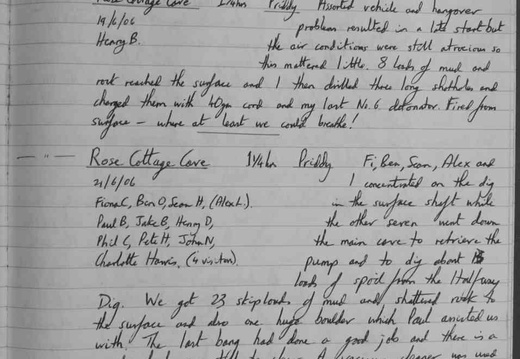 Rose Cottage Cave 1¼hr Priddy Assorted vehicle and hangover
19/6/06 problem resulted in a late start but
Henry B. the air conditions were still atrocious so
this mattered little. 8 loads of mud and
rock reached the surface and I then drilled three long shotholes and
charged them with 40gm cord and my last No. 6 detonator. Fired from
surface – where at least we could breathe!
— " — Rose Cottage Cave 1¼hr Priddy Fi, Ben, Sean, Alex and
21/6/06 I concentrated on the dig
Fiona C, Ben O, Sean H, (Alex L). in the surface shaft while
Paul B, Jake B, Henry D, the other seven went down
Phil C, Pete H, John N, the main cave to retrieve the
Charlotte Harris, (4 visitors) pump and to dig about
loads of spoil from the Halfway
Dig. We got 23 skiploads of mud and shattered rock to
the surface and also one huge boulder which Paul assisted us
with. The last bang had done a good job and there is a